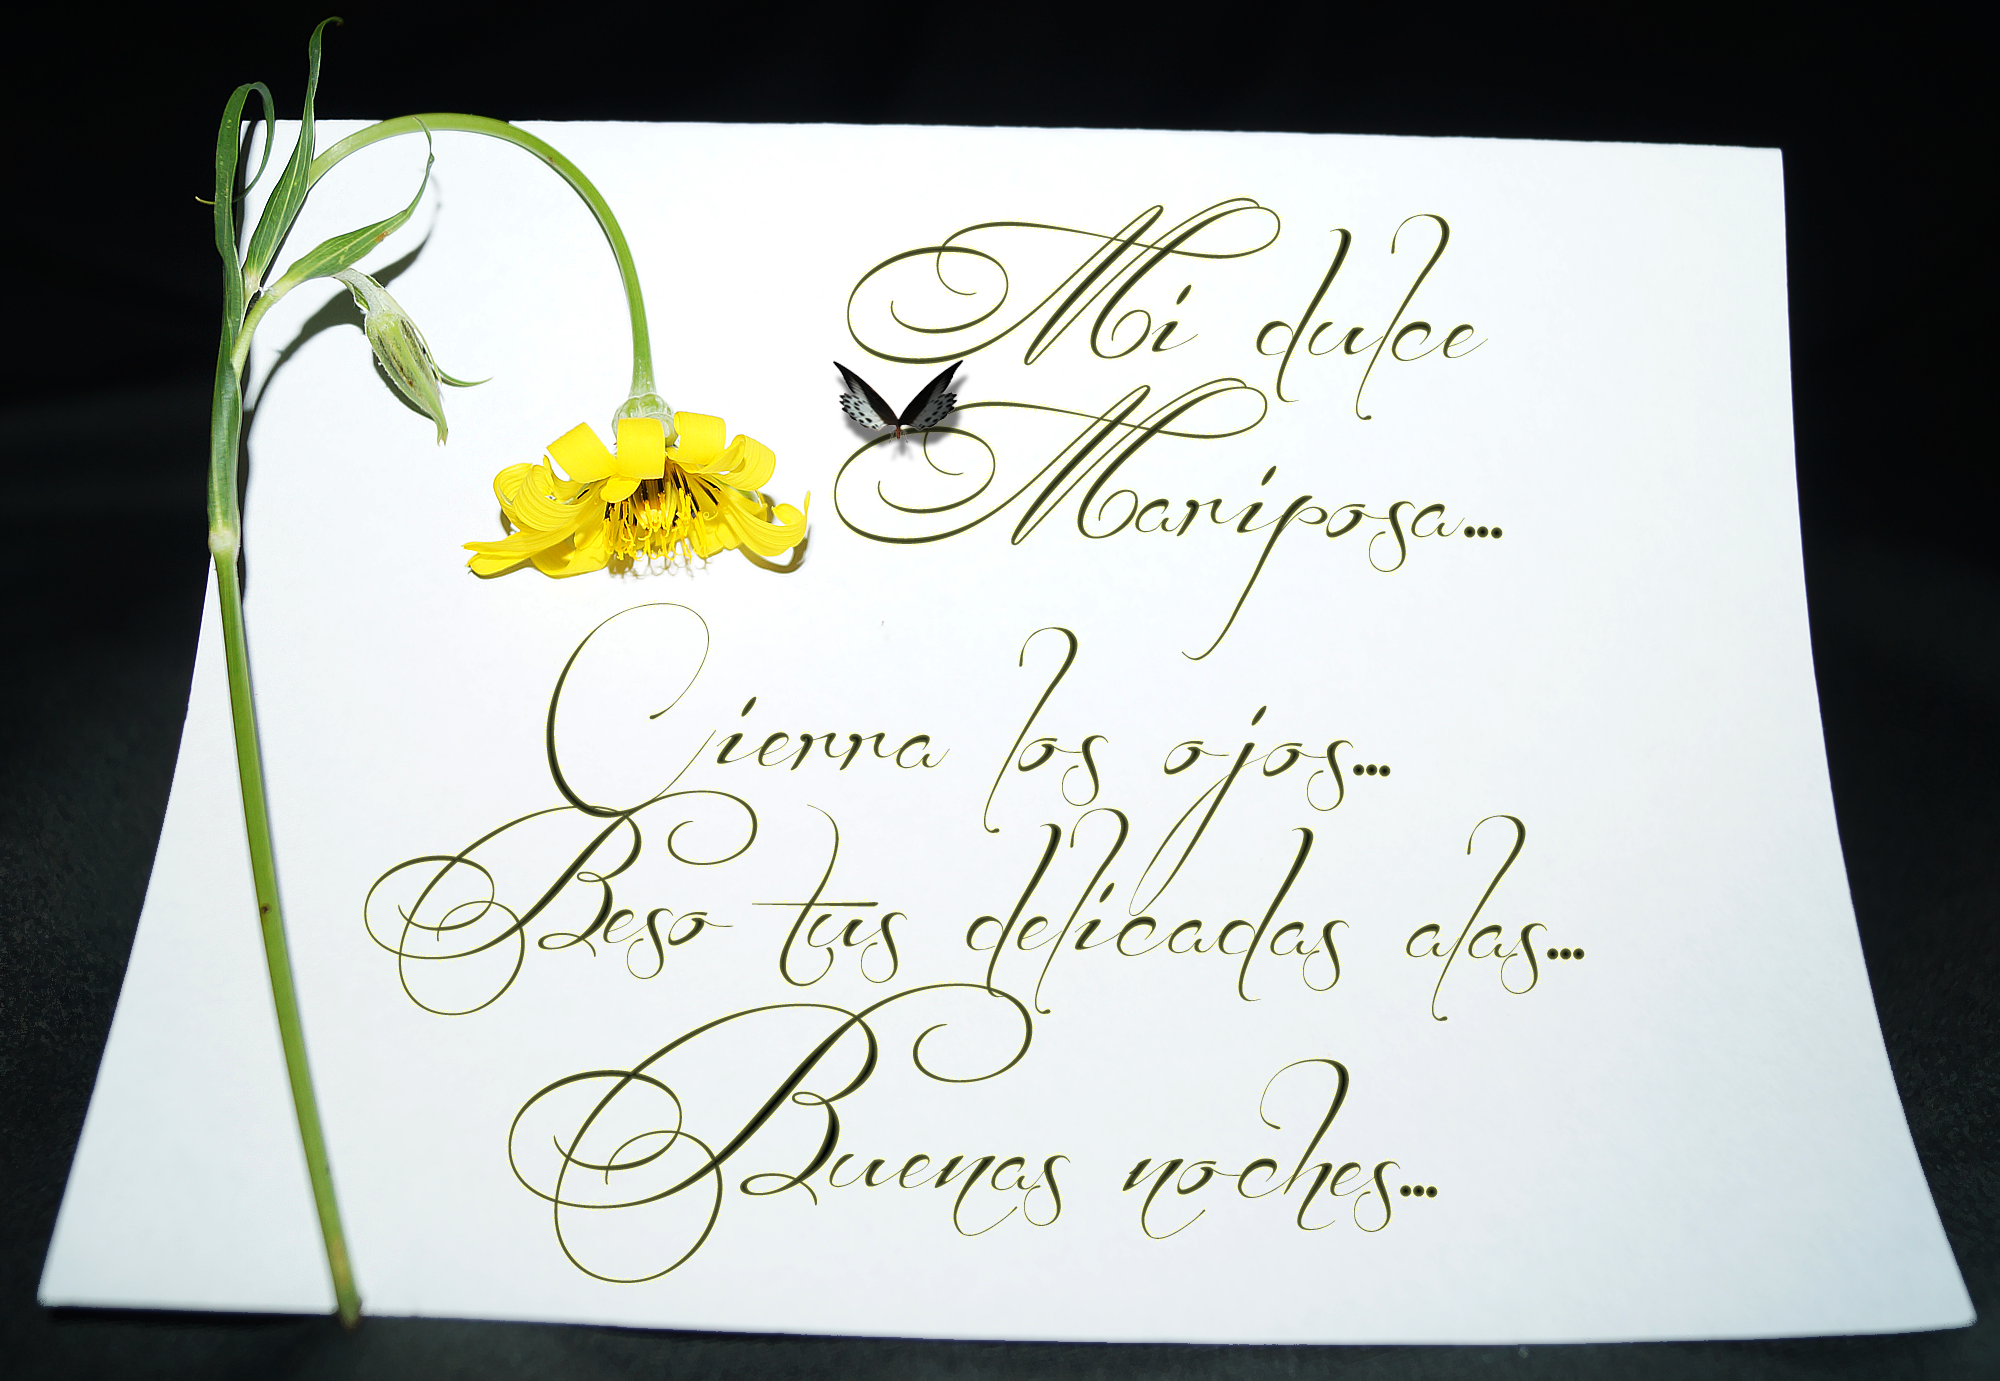 Mi dulce
Mariposa...
Cierra los ojos...
Beso tus delicadas alas...
Buenas noches...